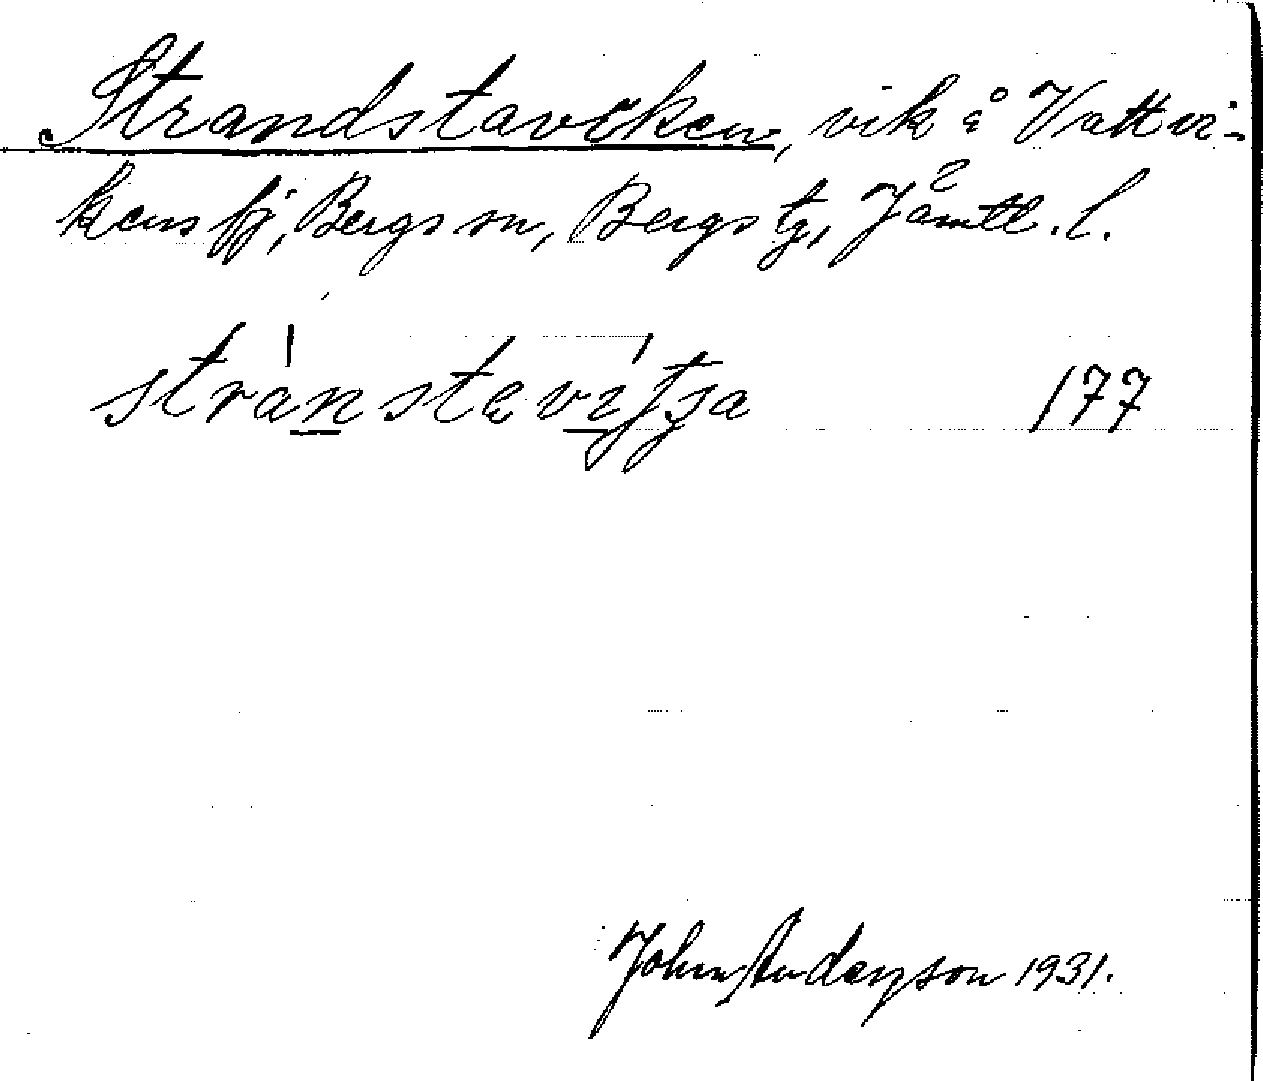 Strandstaviken, vik å Vattvi-
kens fj, Bergs sn, Bergs tg, Jämtl. l.
stránstevítja 177
John Anderson 1931.